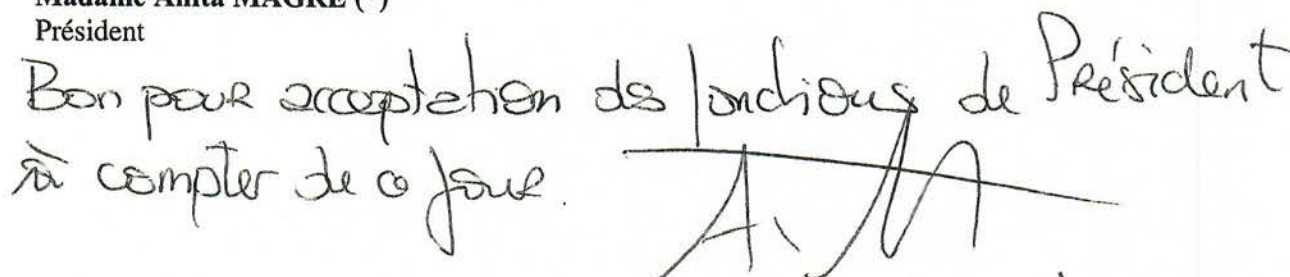 Madame Anita MAGRE (*)
Président
Bon pour acceptation des fonctions de Président
à compter de ce jour.
A. M